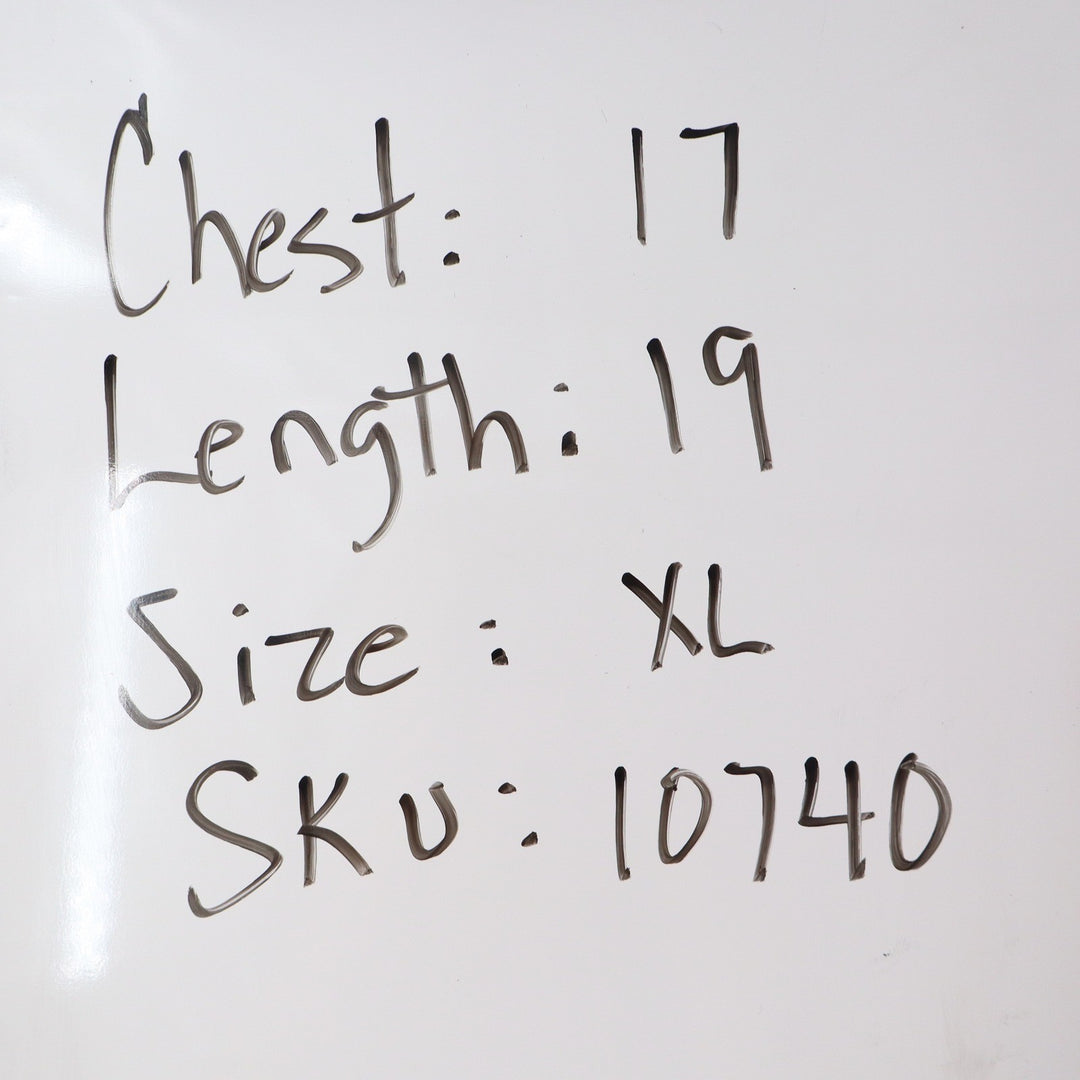 Chest: 17
Length: 19
Size: XL
SKU: 10740